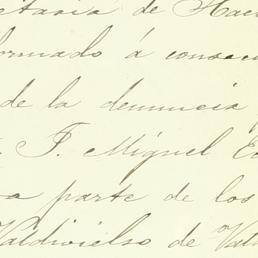 etaria de Hac
formado á consecu
de la denuncia
F. Miguel E
a parte de los
Valdivielso de Val